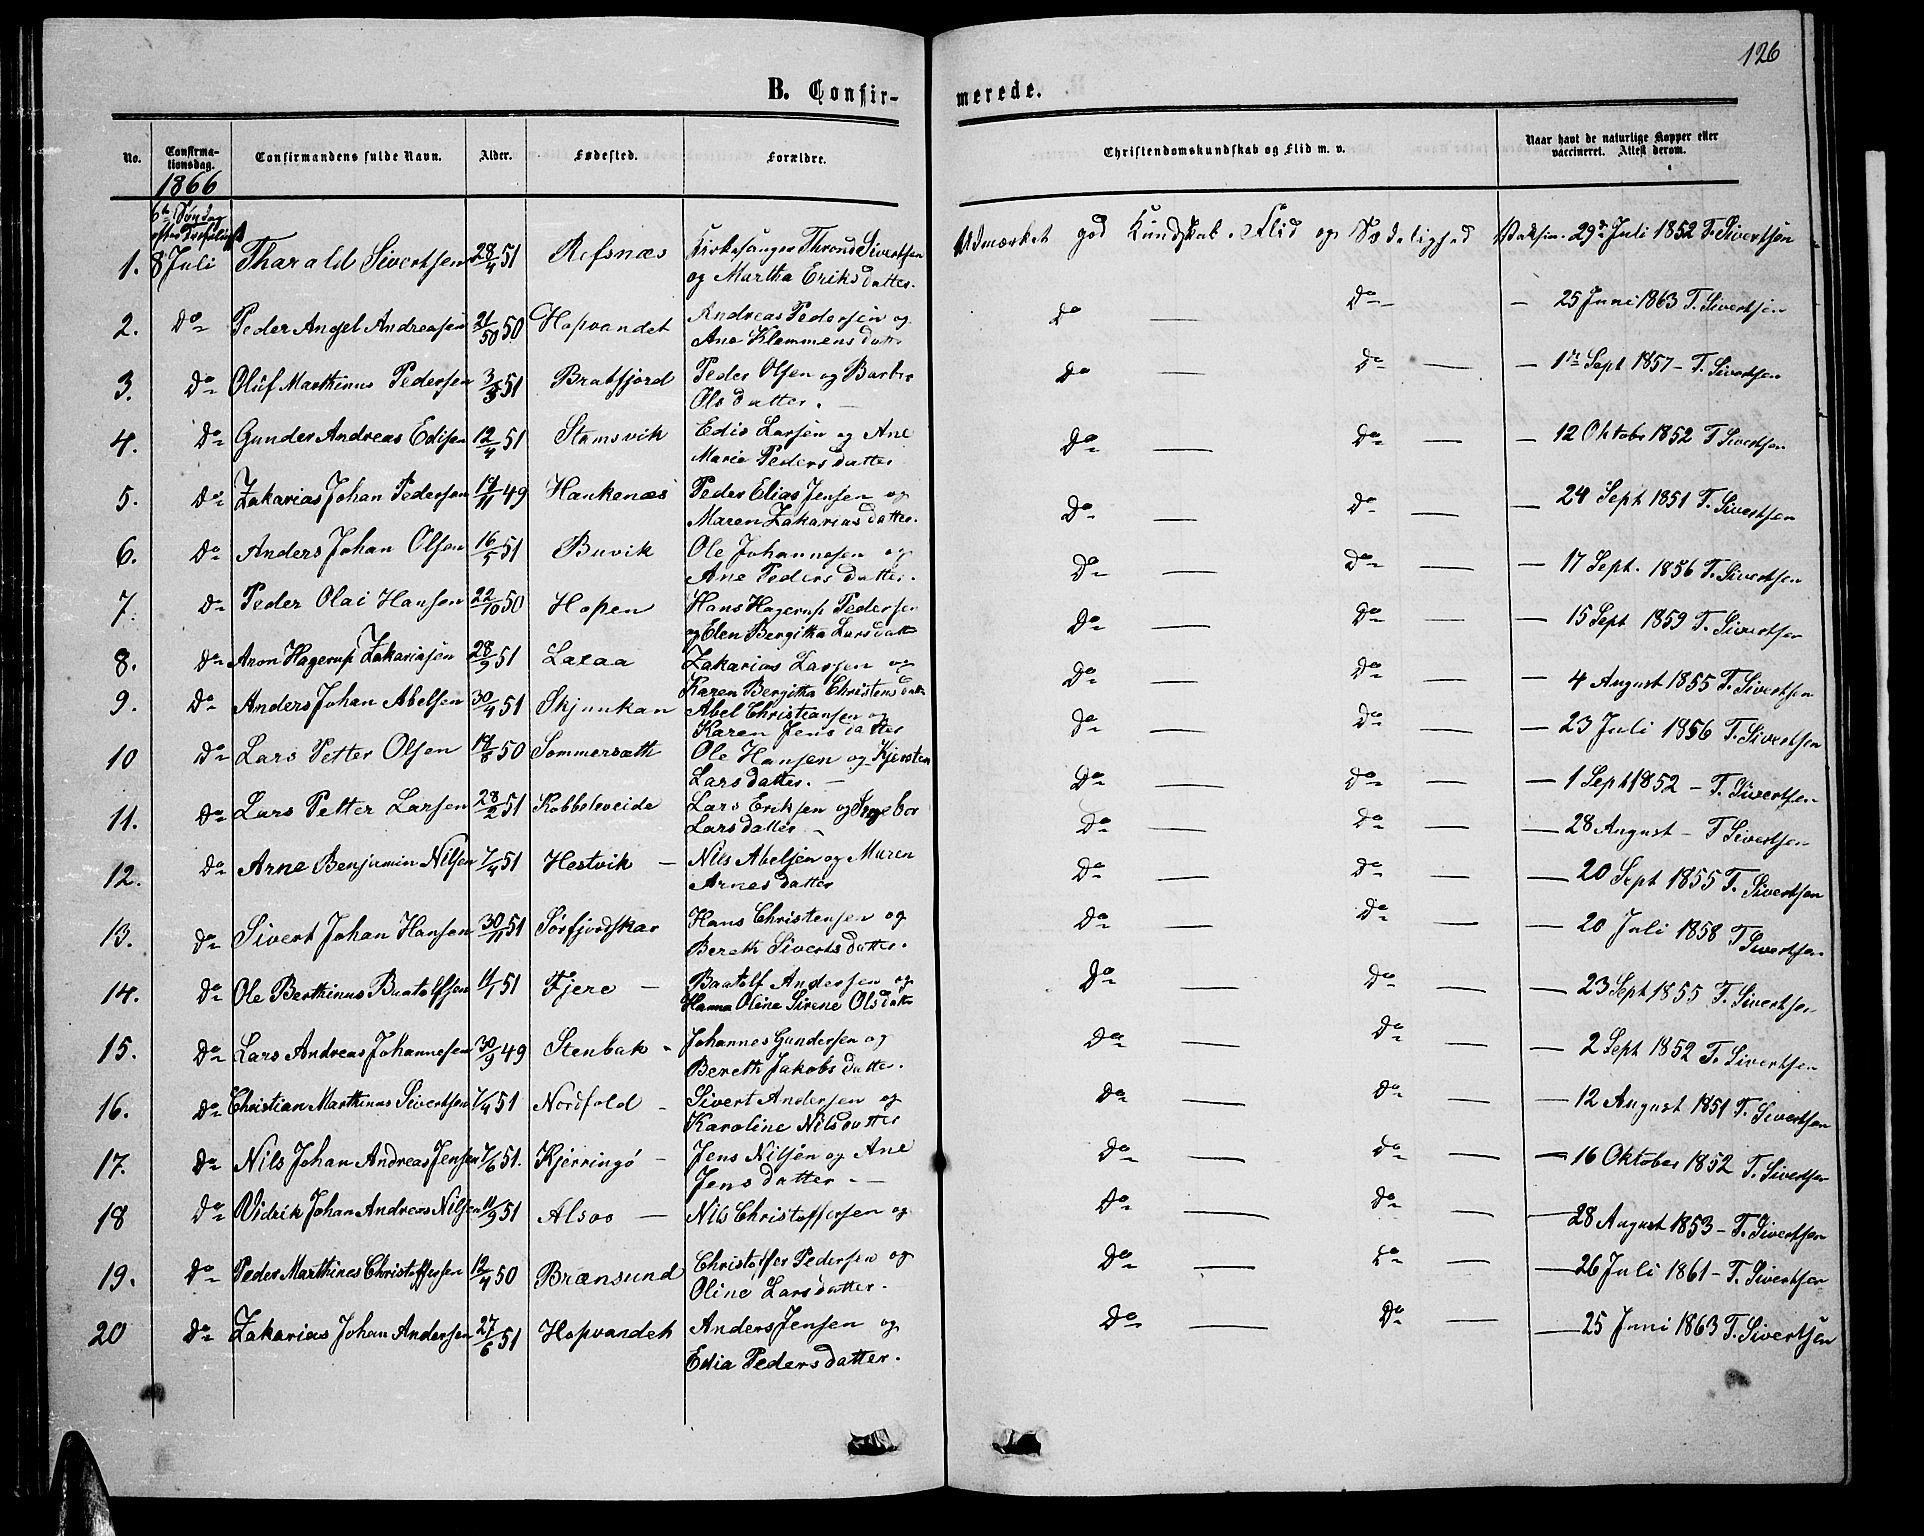 126
B. Confir-
merede.
No.
Confirma-
tionsdag.
Confirmandens fulde Navn.
Alder.
Fødested.
Forældre.
Christendomskundskab og Flid m. v.
Naar havt de naturlige Kopper eller
vaccineret. Attest derom.
1866
6te Søndag
efter Trefoldighed
1. 8 Juli Tharald Sivertsen 28/4 51 Refsnæs Kirkesanger Thrond Sivertsen Udmærket god Kundskab. Flid og Sædelighed Vaksin. 29de Juli 1852 T. Sivertsen
og Martha Eriksdatter.
2. Do Peder Angel Andreasen 21/50 50 Hopvandet Andreas Pedersen og Do — Do — — 25 Juni 1863 T. Sivertsen
Ane Klemmensdatter
3. Do Oluf Marthinus Pedersen 3/3 51 Bratfjord Peder Olsen og Barbr Do — Do — — 1ste Sept 1857 — T. Sivertsen
Olsdatter. —
4. Do Gunder Andreas Edisen 12/4 51 Stamsvik Edis Larsen og Ane Do — Do — — 12 Oktobr 1852 T Sivertsen
Marie Pedersdatter
5. Do Zakarias Johan Pedersen 17/11 49 Haukenæs Peder Elias Jensen og Do — Do — — 24 Sept 1851 T. Sivertsen
Maren Zakariasdatter.
6. Do Anders Johan Olsen 16/5 51 Buvik Ole Johannesen og Do — Do — — 17 Sept. 1856 T. Sivertsen
Ane Pedersdatter.
7. Do Peder Olai Hansen 22/10 50 Hopen Hans Hagerup Pedersen Do — Do — — 15 Sept 1859 T. Sivertsen
og Elen Bergitha Larsdatter
8. Do Aron Hagerup Zakariasen 28/9 51 Laxaa Zakarias Larsen og Do — Do — — 4 August 1855 T. Sivertsen
Karen Bergitha Christensdatter
9. Do Anders Johan Abelsen 30/4 51 Skjunkan Abel Christiansen og Do — Do — — 23 Juli 1856 T. Sivertsen
Karen Jensdatter
10 Do Lars Petter Olsen 17/8 50 Sommersætth Ole Hansen og Kjersten Do — Do — — 1 Sept 1852 — T. Sivertsen
Larsdatter. —
11. Do Lars Petter Larsen 28/2 51 Kobbeleveide Lars Eriksen og Ingebor Do — Do — — 28 August — T Sivertsen
Larsdatter —
12. Do Arne Benjamin Nilsen 7/4 51 Hestvik — Nils Abelsen og Maren Do — Do — — 20 Sept 1855 T. Sivertsen
Arnesdatter
13. Do Sivert Johan Hansen 30/11 51 Sørfjordskar Hans Christensen og Do — Do — — 20 Juli 1858 T Sivertsen
Bereth Sivertsdatter.
14. Do Ole Berthinus Baatolfsen 11/1 51 Fjere — Baatolf Andersen og Do — Do — — 23 Sept 1855 T. Sivertsen
Hanna Oline Sirene Olsdatter
15. Do Lars Andreas Johannesen 30/9 49 Stenbak - Johannes Gundersen og Do — Do — — 2 Sept 1852 T. Sivertsen
Bereth Jakobsdatter.
16. Do Christian Marthinus Sivertsen 7/4 51 Nordfold - Sivert Andersen og Do — Do — — 12 August 1851 T. Sivertsen
Karoline Nilsdatter
17. Do Nils Johan Andreas Jensen 7/6 51. Kjerringø — Jens Nilsen og Ane Do — Do — — 16 Oktober 1852 T. Sivertsen
Jensdatter. —
18 Do Vidrik Johan Andreas Nilsen 11/9 51 Alsos — Nils Christoffersen og Do — Do — — 28 August 1853 — T. Sivertsen
19. Do Peder Marthines Christoffersen 12/4 50 Brænsund Christoffer Pedersen og Do — Do — — 26 Juli 1861 — T. Sivertsen
Oline Larsdatter.
20 Do Zakarias Johan Andersen 27/6 51 Hopvandet Anders Jensen og Do — Do — — 25 Juni 1863 T. Sivertsen
Edia Pedersdatter.